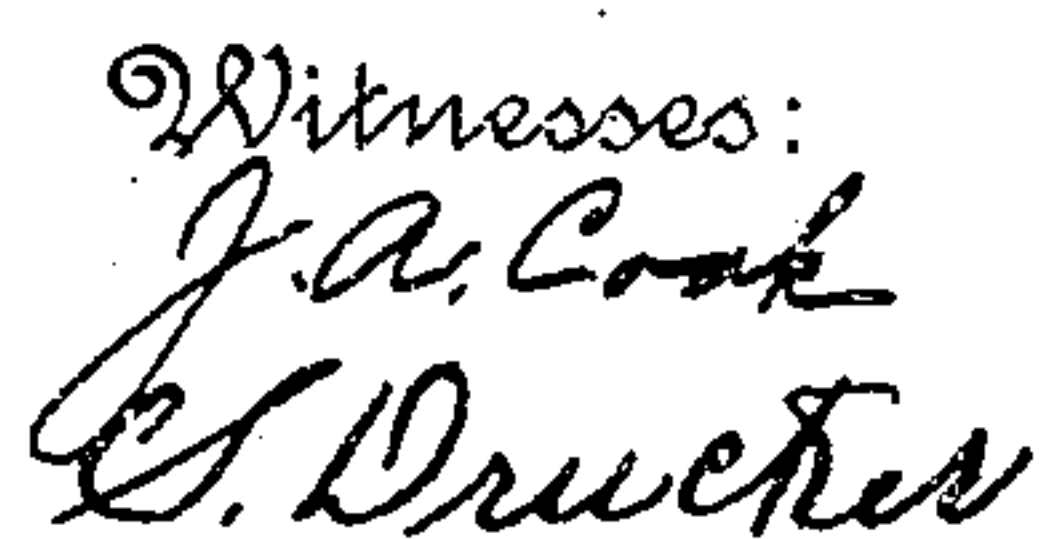 Witnesses:
J. A. Cook
C. S. Drucker